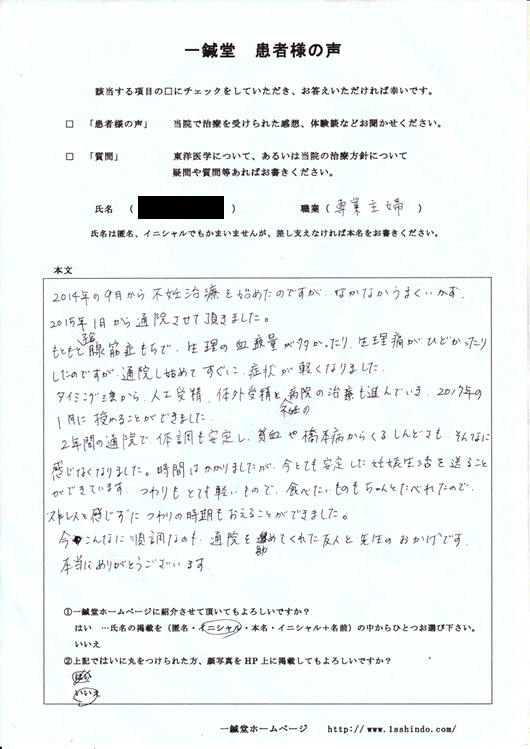 一鍼堂 患者様の声
該当する項目の□にチェックをしていただき、お答えいただければ幸いです。
□ 「患者様の声」 当院で治療を受けられた感想、体験談などお聞かせください。
□ 「質問」 東洋医学について、あるいは当院の治療方針について
疑問や質問等あればお書きください。
氏名 ( ) 職業 ( 専業主婦 )
氏名は匿名、イニシャルでもかまいませんが、差し支えなければ本名をお書きください。
本文
2014年の9月から不妊治療を始めたのですが、なかなかうまくいかず、
2015年1月から通院させて頂きました。
もともと腺筋症もちで、生理の血液量が多かったり、生理痛がひどかったり
したのですが、通院し始めてすぐに、症状が軽くなりました。
タイミング法から、人工受精、体外受精と不妊の病院の治療も進んでいき、2017年の
1月に授かることができました。
2年間の通院で、体調も安定し、貧血や橋本病からくるしんどさも、そんなに
感じなくなりました。時間はかかりましたが、今とても安定した妊娠生活を送ること
ができています。つわりもとても軽いもので、食べたいものもちゃんとたべれたので、
ストレスを感じずにつわりの時期もおえることができました。
今こんなに順調なのも、通院を勧めてくれた友人と先生のおかげです。
本当にありがとうございます。
①一鍼堂ホームページに紹介させて頂いてもよろしいですか？
はい …氏名の掲載を（匿名・イニシャル・本名・イニシャル＋名前）の中からひとつお選び下さい。
いいえ
②上記ではいに丸をつけられた方、顔写真をHP上に掲載してもよろしいですか？
いいえ
一鍼堂ホームページ http://www.1sshindo.com/